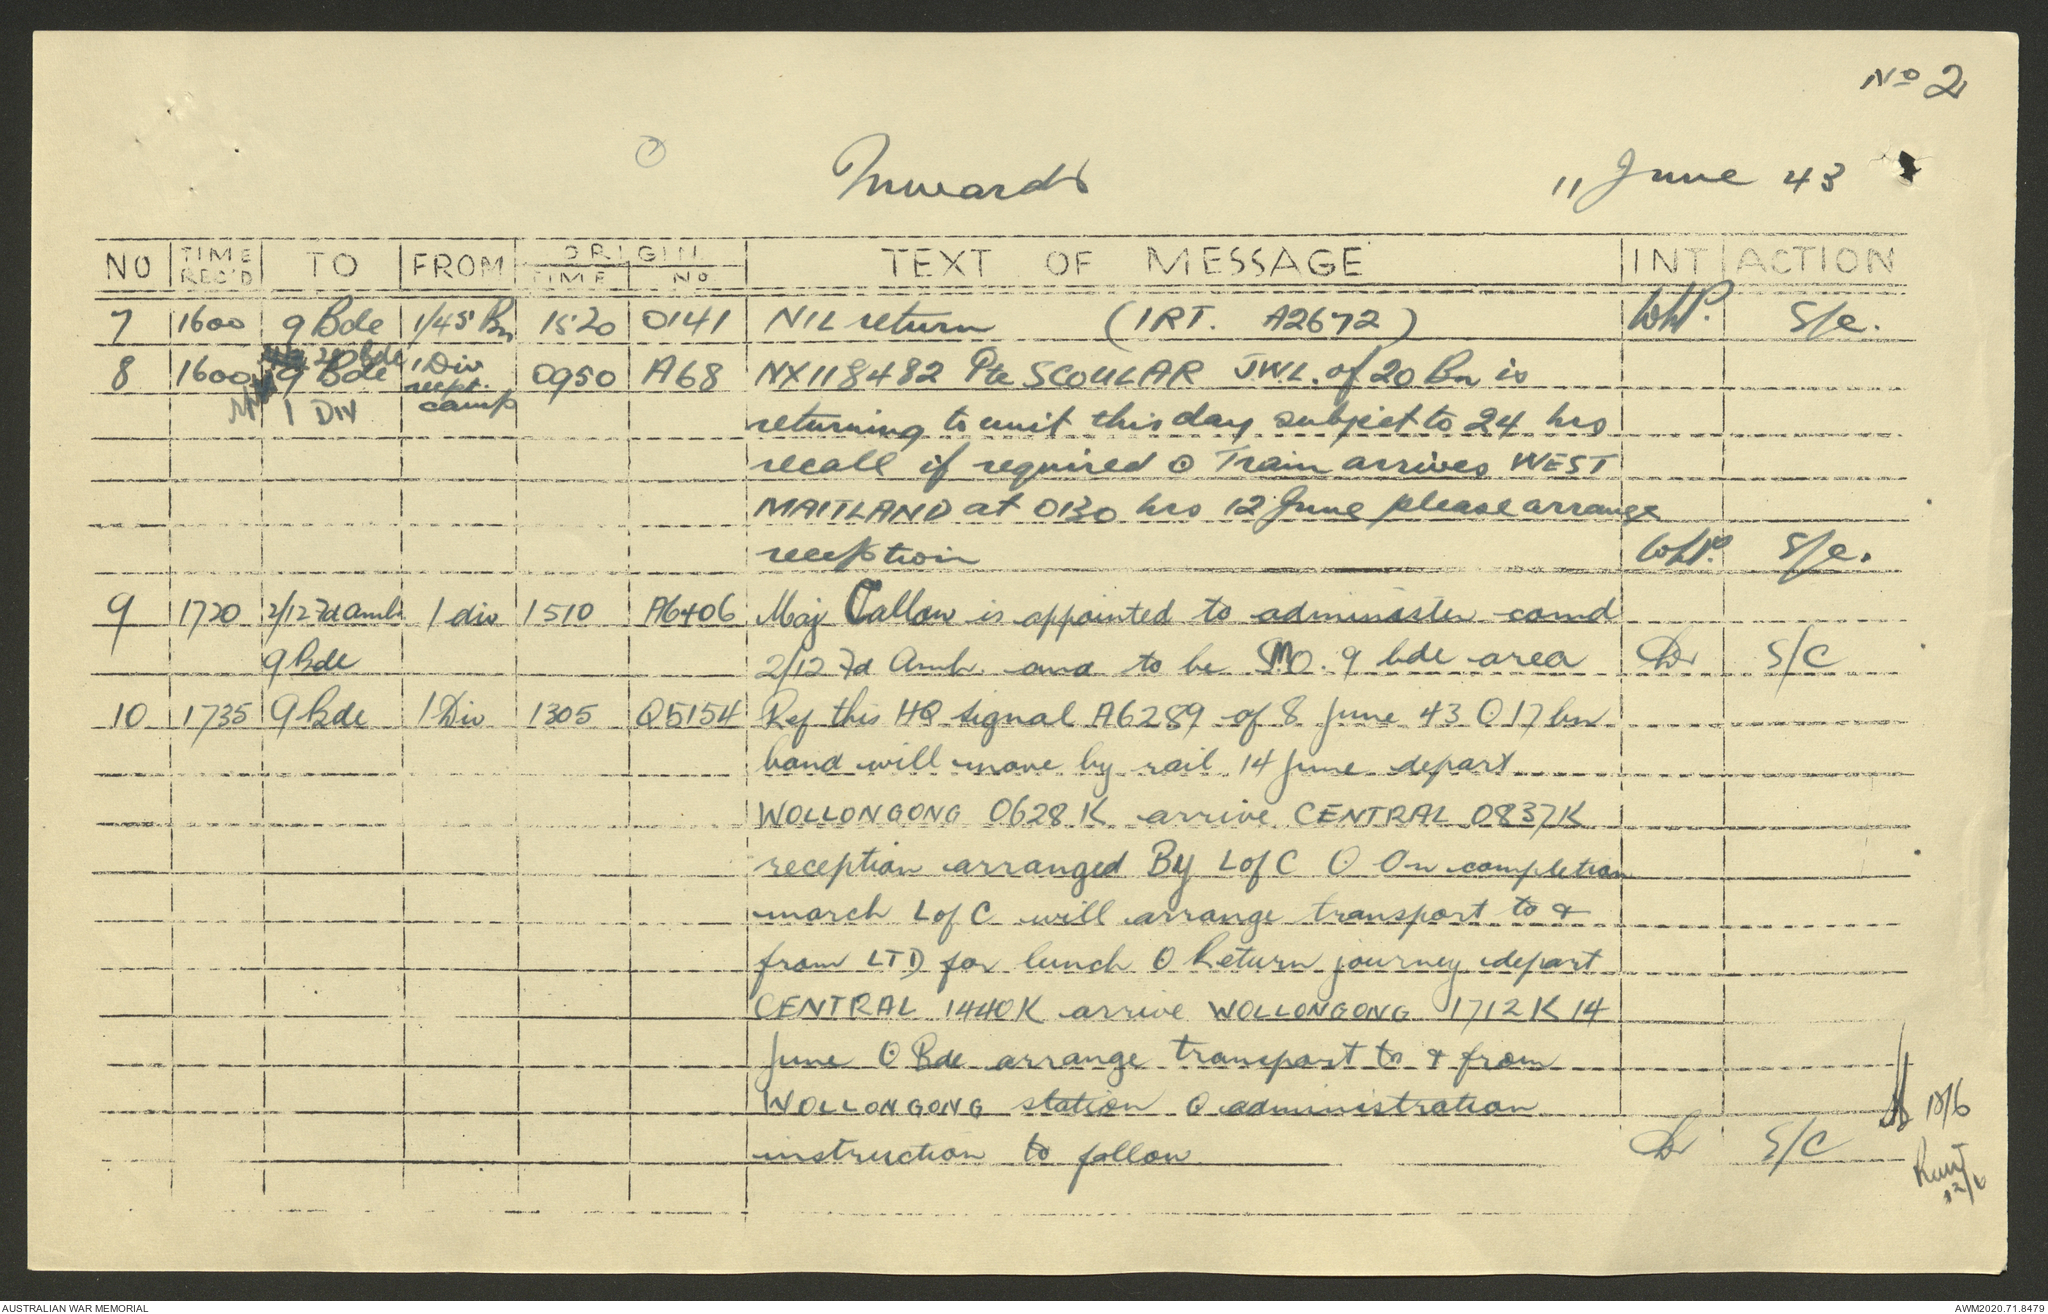 No 2
Inwards
11 June 43
NO TIME REC'D TO FROM ORIGIN TIME No TEXT OF MESSAGE INT ACTION
7 1600 9 Bde 1/45 Bn 1520 0141 NIL return (IRT. A2672) WhP. S/c.
8 1600 20 Bde 9 Bde 1 Div recept. camp 0950 A68 NX118482 Pte SCOULAR JWL. of 20 Bn is
1 DIV returning to unit this day subject to 24 hrs
recall if required ⊙ Train arrives WEST
MAITLAND at 0130 hrs 12 June please arrange
reception WhP. S/c.
9 1720 2/12 Fd Amb 1 div 1510 A6406 Maj Callow is appointed to administer comd
9 Bde 2/12 Fd Amb. and to be SMO. 9 bde area S/C
10 1735 9 Bde 1 Div 1305 Q5154 Ref this HQ signal A6289 of 8 June 43 ⊙ 17 bn
band will move by rail 14 June depart
WOLLONGONG 0628K arrive CENTRAL 0837K
reception arranged By L of C ⊙ On completion
march L of C will arrange transport to &
from LTD for lunch ⊙ Return journey depart
CENTRAL 1440K arrive WOLLONGONG 1712K 14
June ⊙ Bde arrange transport to & from
WOLLONGONG station ⊙ administration
instruction to follow S/C
12/6
AUSTRALIAN WAR MEMORIAL
AWM2020.71.8479